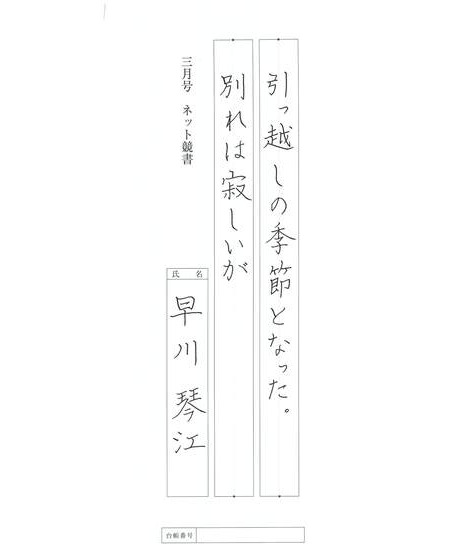 引っ越しの季節となった。
別れは寂しいが
三月号 ネット競書
氏名
早川琴江
台帳番号